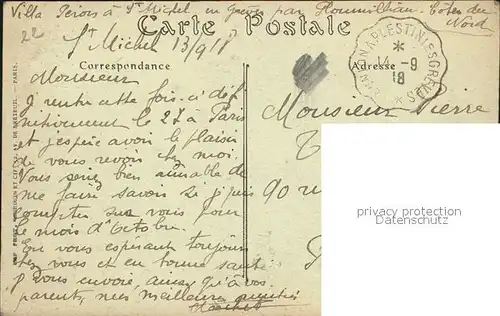 Villa à St Michel en Grève par Côtes du Nord
22
Carte Postale
St Michel 13/9 18
Correspondance
Adresse
LANNION A PLESTIN-LES-GREVES
14 -9
18
Monsieur
Je rentre cette fois-ci défi
nitivement le 27 à Paris
et j'espère avoir le plaisir
de vous revoir chez moi.
Vous seriez bien aimable de
me faire savoir si je puis
compter sur vous pour
le mois d'Octobre.
En vous espérant toujours
chez vous et en bonne santé
je vous envoie, ainsi qu'à vos
parents, mes meilleures amitiés
Monsieur Pierre
90 ru
privacy protection
watermark